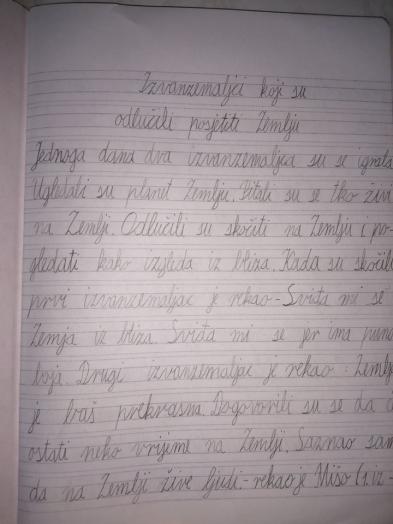 Izvanzemaljci koji su
odlučili posjetiti Zemlju
Jednoga dana dva izvanzemaljca su se igrala
Ugledali su planet Zemlju. Pitali su se tko živi
na Zemlji. Odlučili su skočiti na Zemlju i po-
gledati kako izgleda iz bliza. Kada su skočili
prvi izvanzemaljac je rekao - Sviđa mi se
Zemja iz bliza. Sviđa mi se jer ima puno
boja. Drugi izvanzemaljac je rekao: Zemlj
je baš prekrasna. Dogovorili su se da ć
ostati neko vrijime na Zemlji. Saznao sam
da na Zemlji žive ljudi. - rekao je Mišo (1. iz-